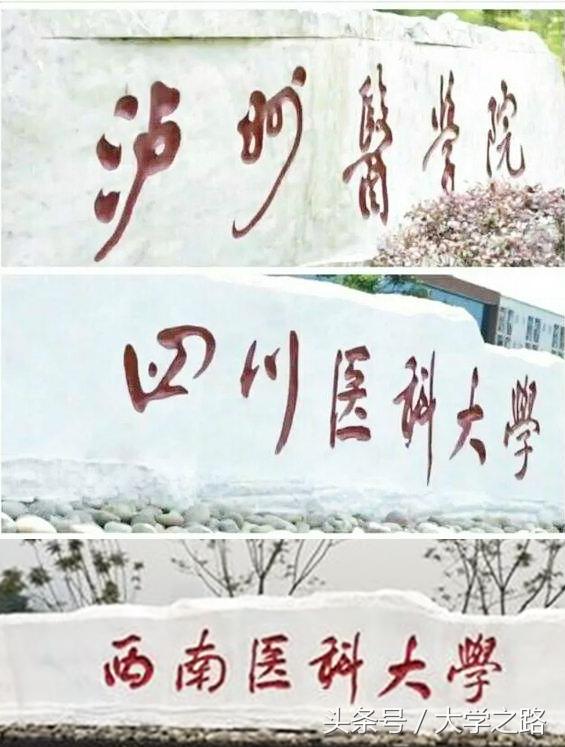 泸州醫学院
四川医科大學
西南医科大學
头条号 / 大学之路